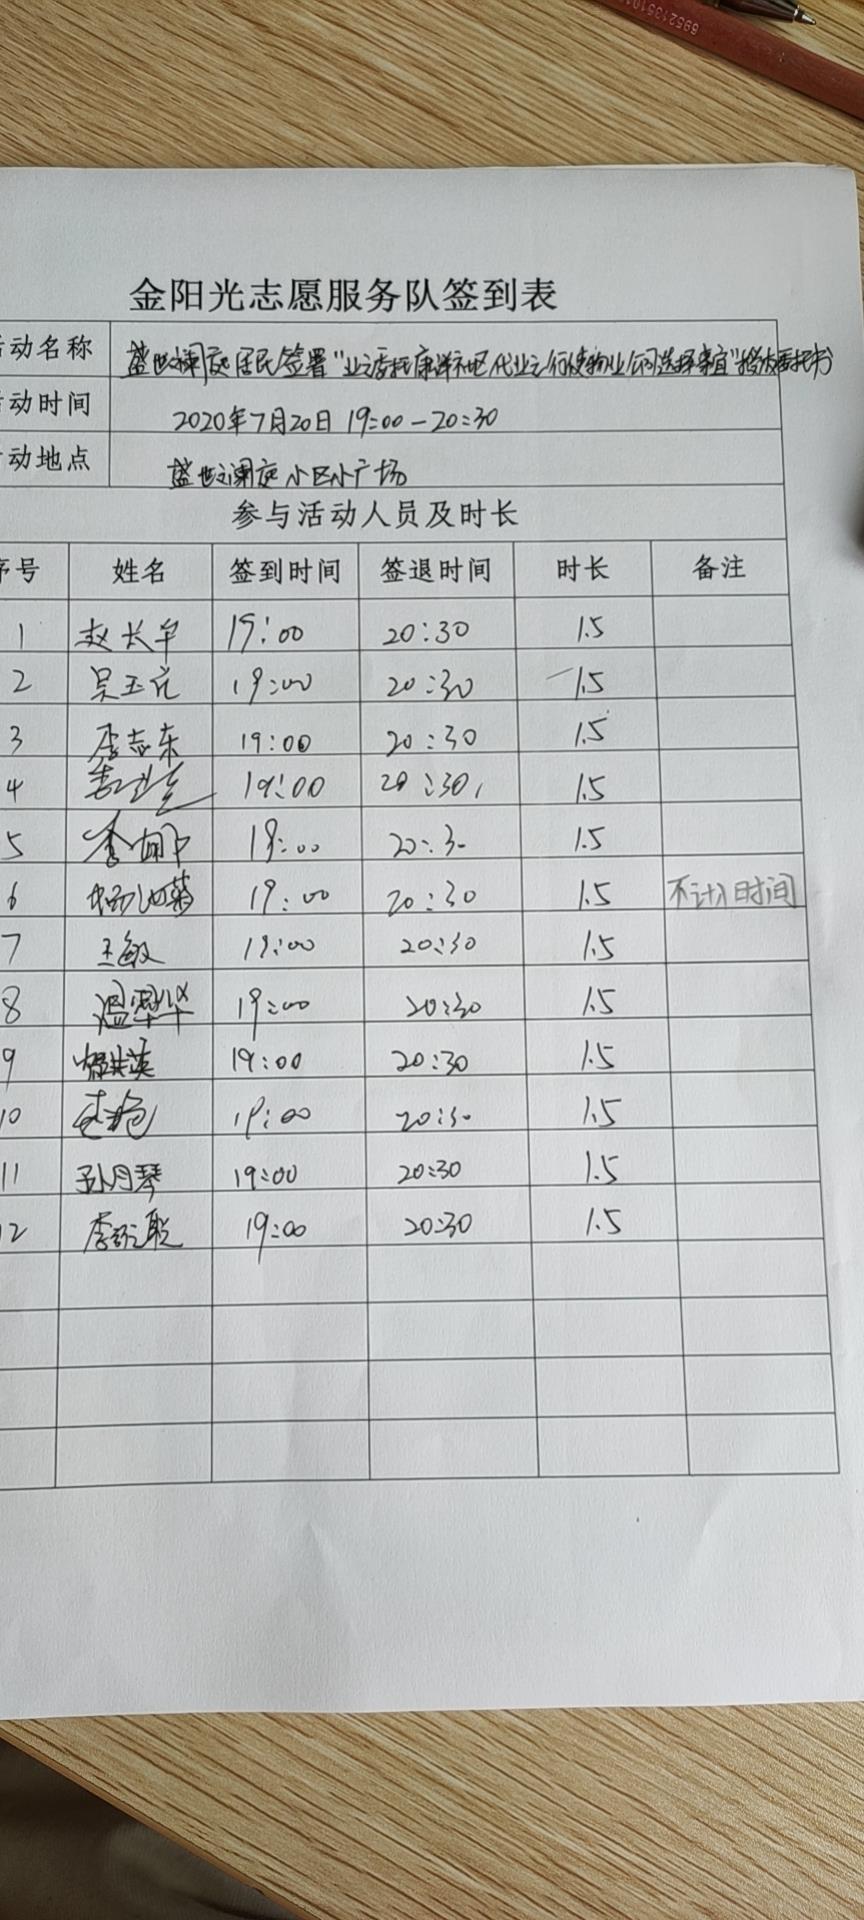 6952135101
金阳光志愿服务队签到表
动名称 盛世澜庭居民签署"业主委托康洋社区代业主行使物业公司选择事宜" 委托书
动时间 2020年7月20日 19:00-20:30
动地点 盛世澜庭小区小广场
参与活动人员及时长
序号 姓名 签到时间 签退时间 时长 备注
1 赵长年 19:00 20:30 1.5
2 吴玉亮 19:00 20:30 1.5
3 李志东 19:00 20:30 1.5
4 19:00 20:30 1.5
5 19:00 20:30 1.5
6 19:00 20:30 1.5 不计入时间
7 王敏 19:00 20:30 1.5
8 温翠华 19:00 20:30 1.5
9 19:00 20:30 1.5
10 19:00 20:30 1.5
11 孙月琴 19:00 20:30 1.5
12 19:00 20:30 1.5